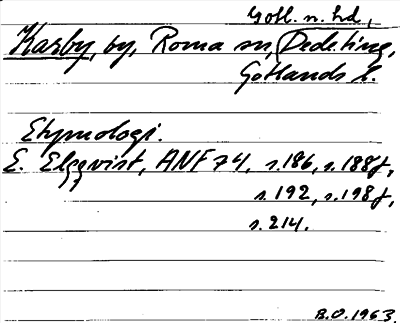 Gotl. n. hd,
Karby, by, Roma sn (Dede ting,
Gotlands l.
Etymologi.
E. Elgqvist, ANF 74, s. 186, s. 188f,
s. 192, s. 198f,
s. 214.
B.O. 1963.